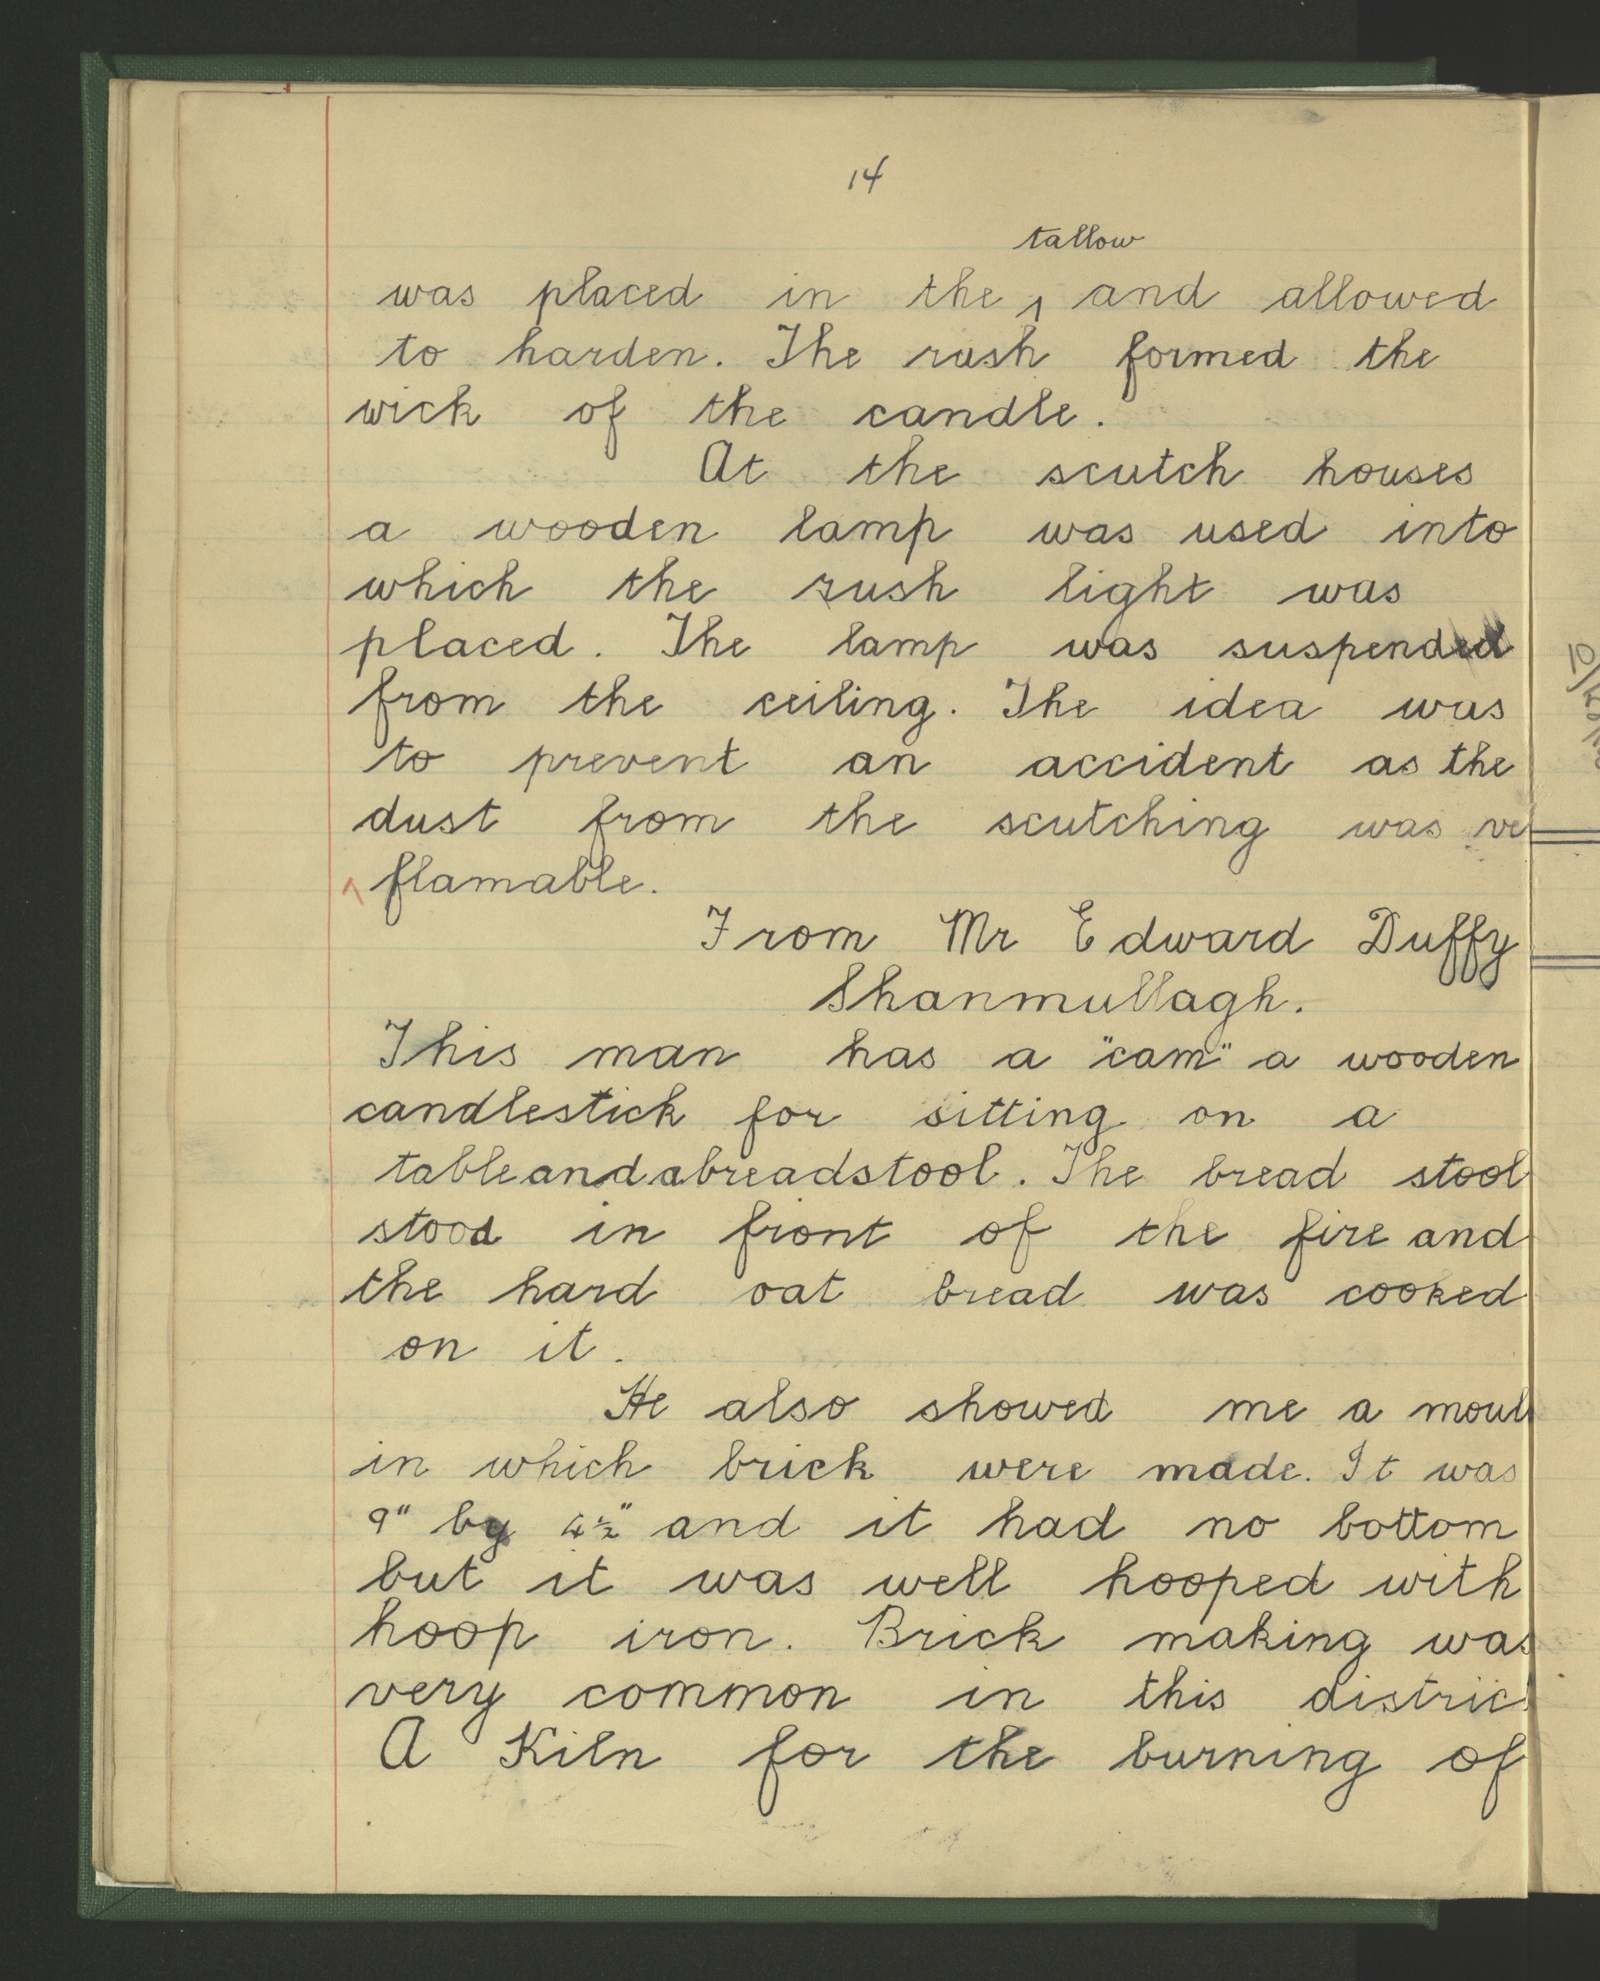 14
tallow
was placed in the ^ and allowed
to harden. The rush formed the
wick of the candle.
At the scutch houses
a wooden lamp was used into
which the rush light was
placed. The lamp was suspended
from the ceiling. The idea was
to prevent an accident as the
dust from the scutching was ve
^ flamable.
From Mr Edward Duffy
Shanmullagh.
This man has a "cam" a wooden
candlestick for sitting on a
table and a breadstool. The bread stool
stood in front of the fire and
the hard oat bread was cooked
on it.
He also showed me a moul
in which brick were made. It was
9" by 4½" and it had no bottom
but it was well hooped with
hoop iron. Brick making was
very common in this distric
A Kiln for the burning of